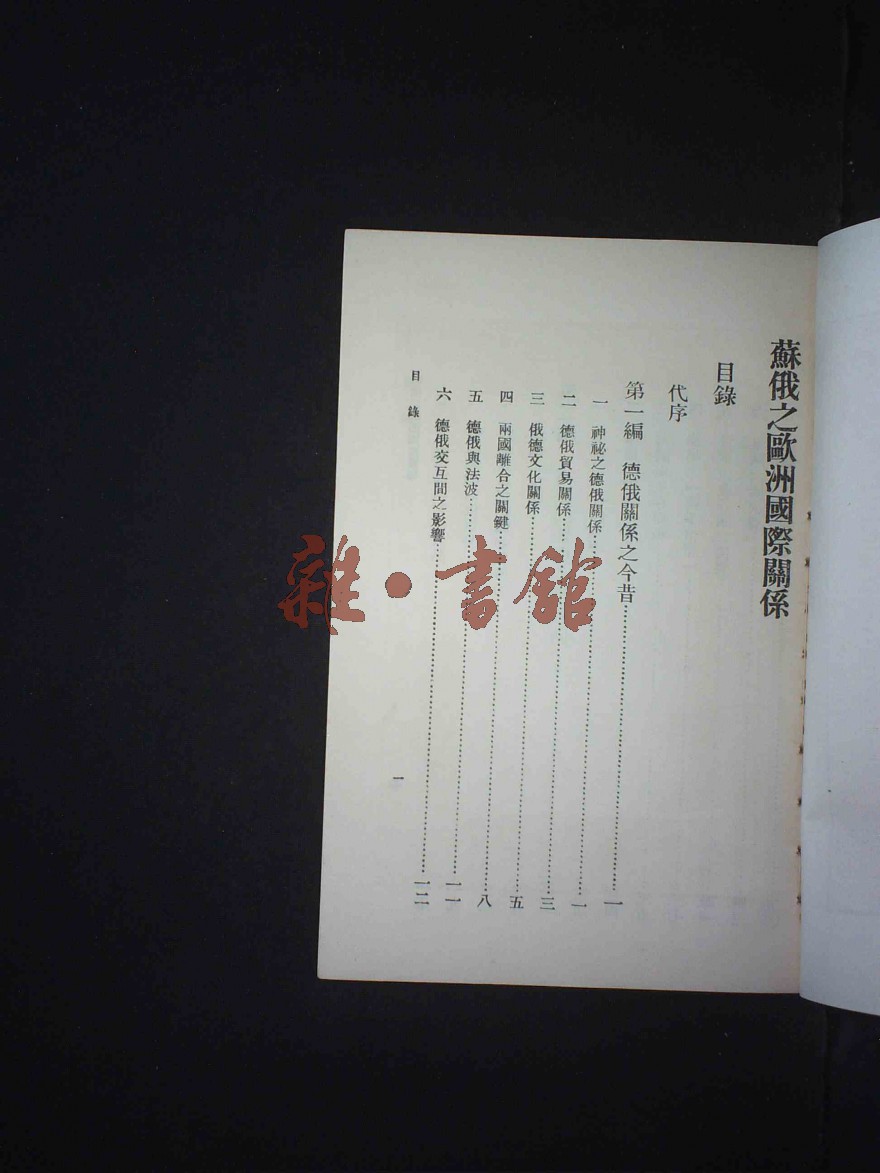 蘇俄之歐洲國際關係
目錄
代序
第一編　德俄關係之今昔……一
一　神祕之德俄關係……一
二　德俄貿易關係……三
三　俄德文化關係……五
四　兩國離合之關鍵……八
五　德俄與法波……一一
六　德俄交互間之影響……一二
目錄
一
雜·書館